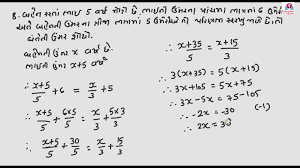 8. બહેન કરતાં ભાઈ 5 વર્ષ મોટો છે. ભાઈની ઉંમરના પાંચમા ભાગમાં 6 ઉમેરો
અને બહેનની ઉંમરના ત્રીજા ભાગમાં 5 ઉમેરીએ તો પરિણામ સરખું મળે છે. તો
બંનેની ઉંમર શોધો.
બહેનની ઉંમર x વર્ષ છે.
ભાઈની ઉંમર x+5 વર્ષ
∴ x+5/5 + 6 = x/3 + 5
∴ x+5/5 + 6×5/5 = x/3 + 5×3/3
∴ x+5/5 + 30/5 = x/3 + 15/3
∴ x+35/5 = x+15/3
∴ 3(x+35) = 5(x+15)
∴ 3x-5x = 75-105
∴ -2x = -30 (-1)
∴ 2x = 30